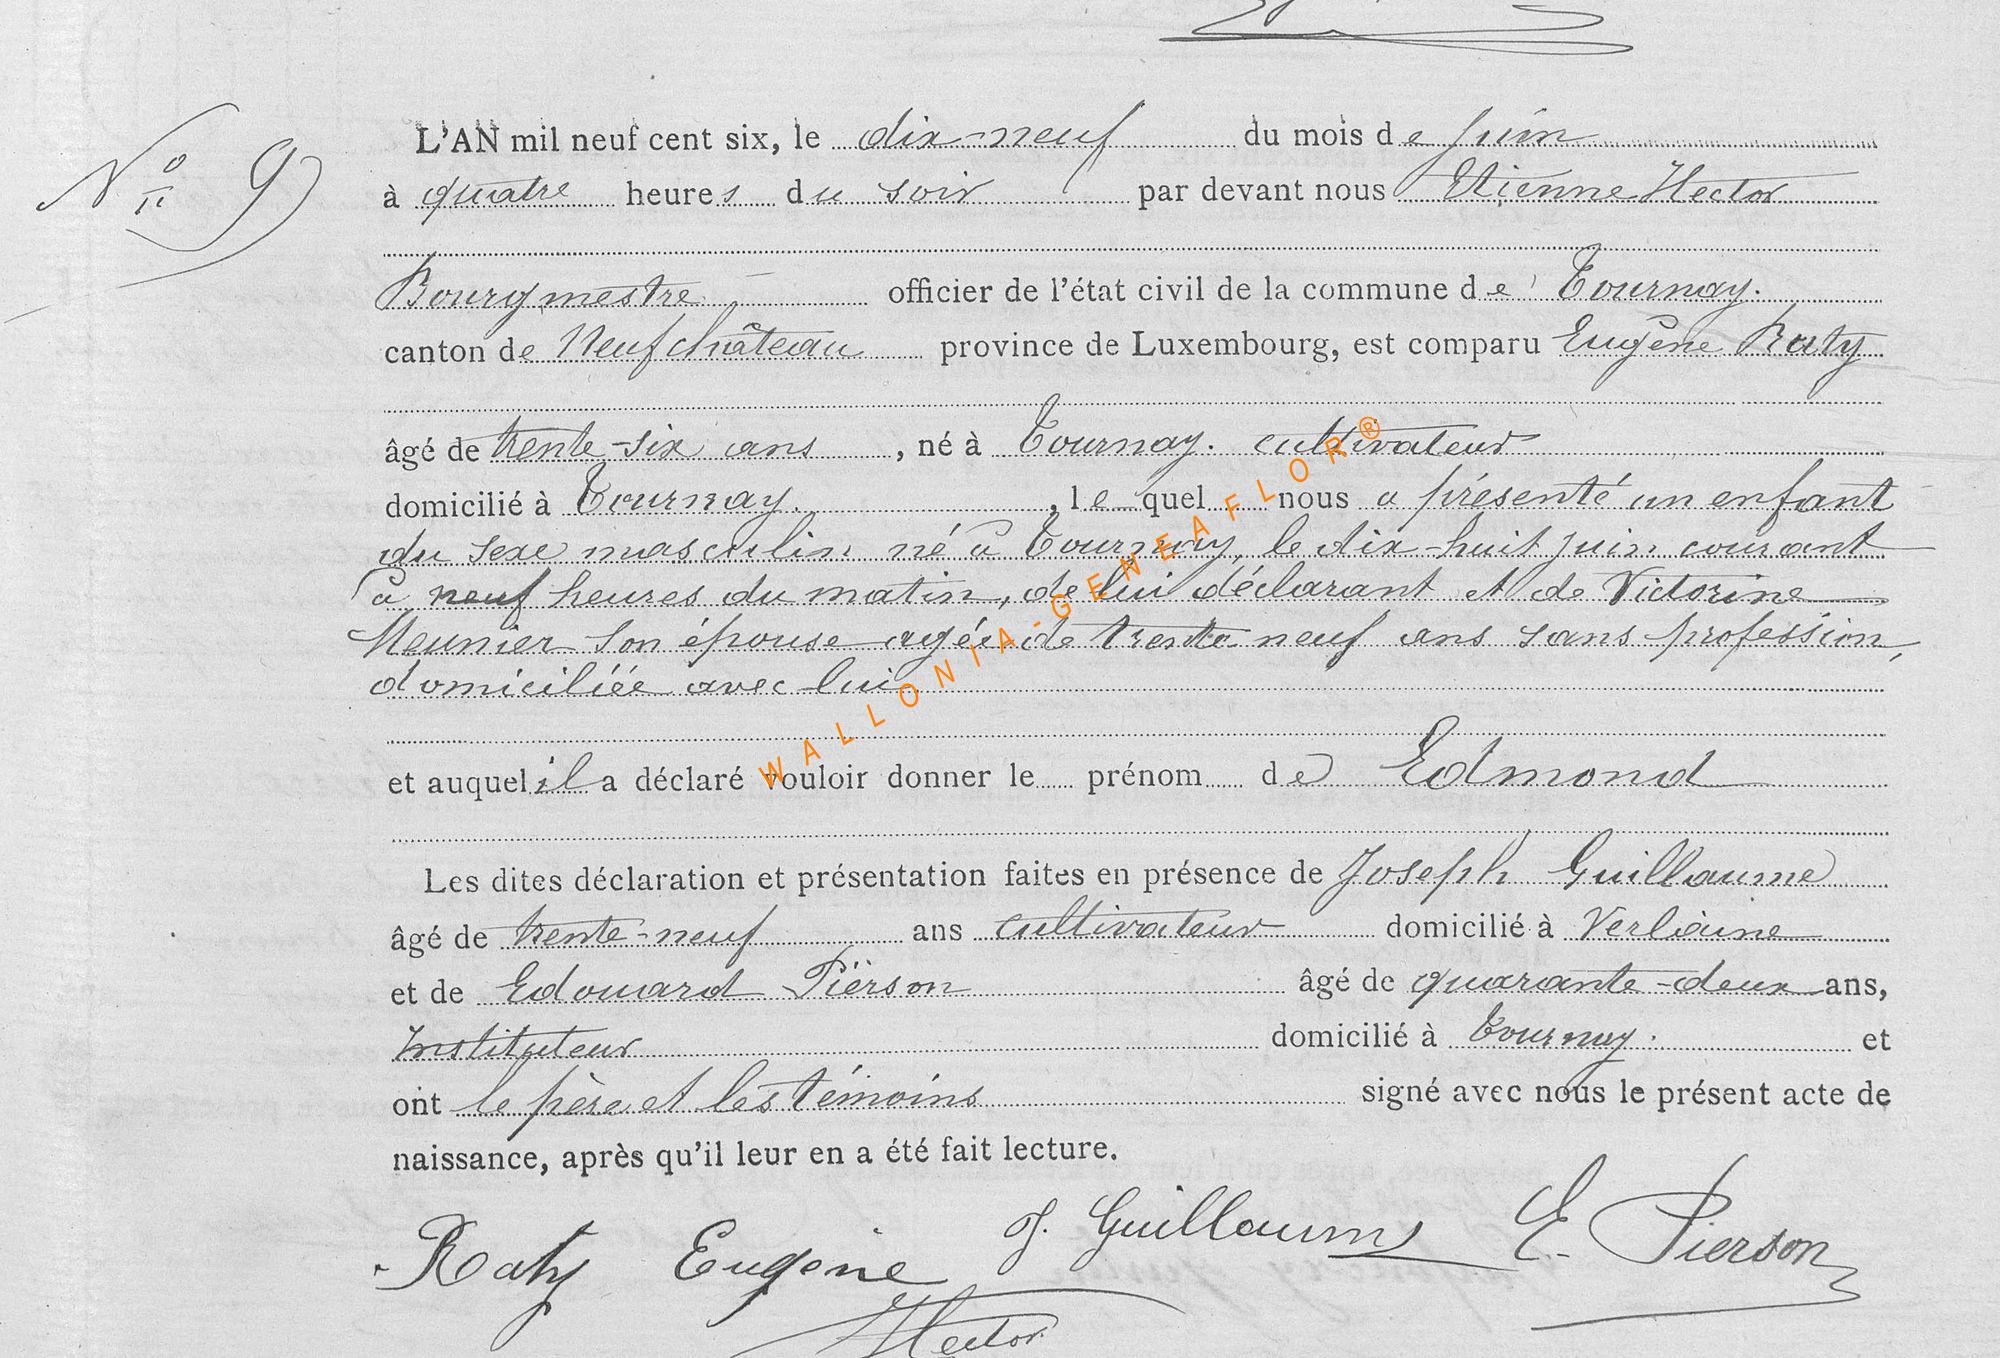 Nº 9
L'AN mil neuf cent six, le dix-neuf du mois de juin
à quatre heures du soir par devant nous Etienne Hector
Bourgmestre officier de l'état civil de la commune de Tournay.
canton de Neufchâteau province de Luxembourg, est comparu Eugène Raty
âgé de trente-six ans, né à Tournay. cultivateur
domicilié à Tournay., lequel nous a présenté un enfant
du sexe masculin né à Tournay, le dix-huit juin courant
à neuf heures du matin, de lui déclarant et de Victorine
Meunier son épouse agée de trente-neuf ans sans profession,
domiciliée avec lui
et auquel il a déclaré vouloir donner le prénom de Edmond
Les dites déclaration et présentation faites en présence de Joseph Guillaume
âgé de trente-neuf ans cultivateur domicilié à Verlaine
et de Edouard Piërson âgé de quarante-deux ans,
Instituteur domicilié à Tournay. et
ont le père et les témoins signé avec nous le présent acte de
naissance, après qu'il leur en a été fait lecture.
Raty Eugène J. Guillaume E. Pierson
Hector
WALLONIA-GENEAFLOR®